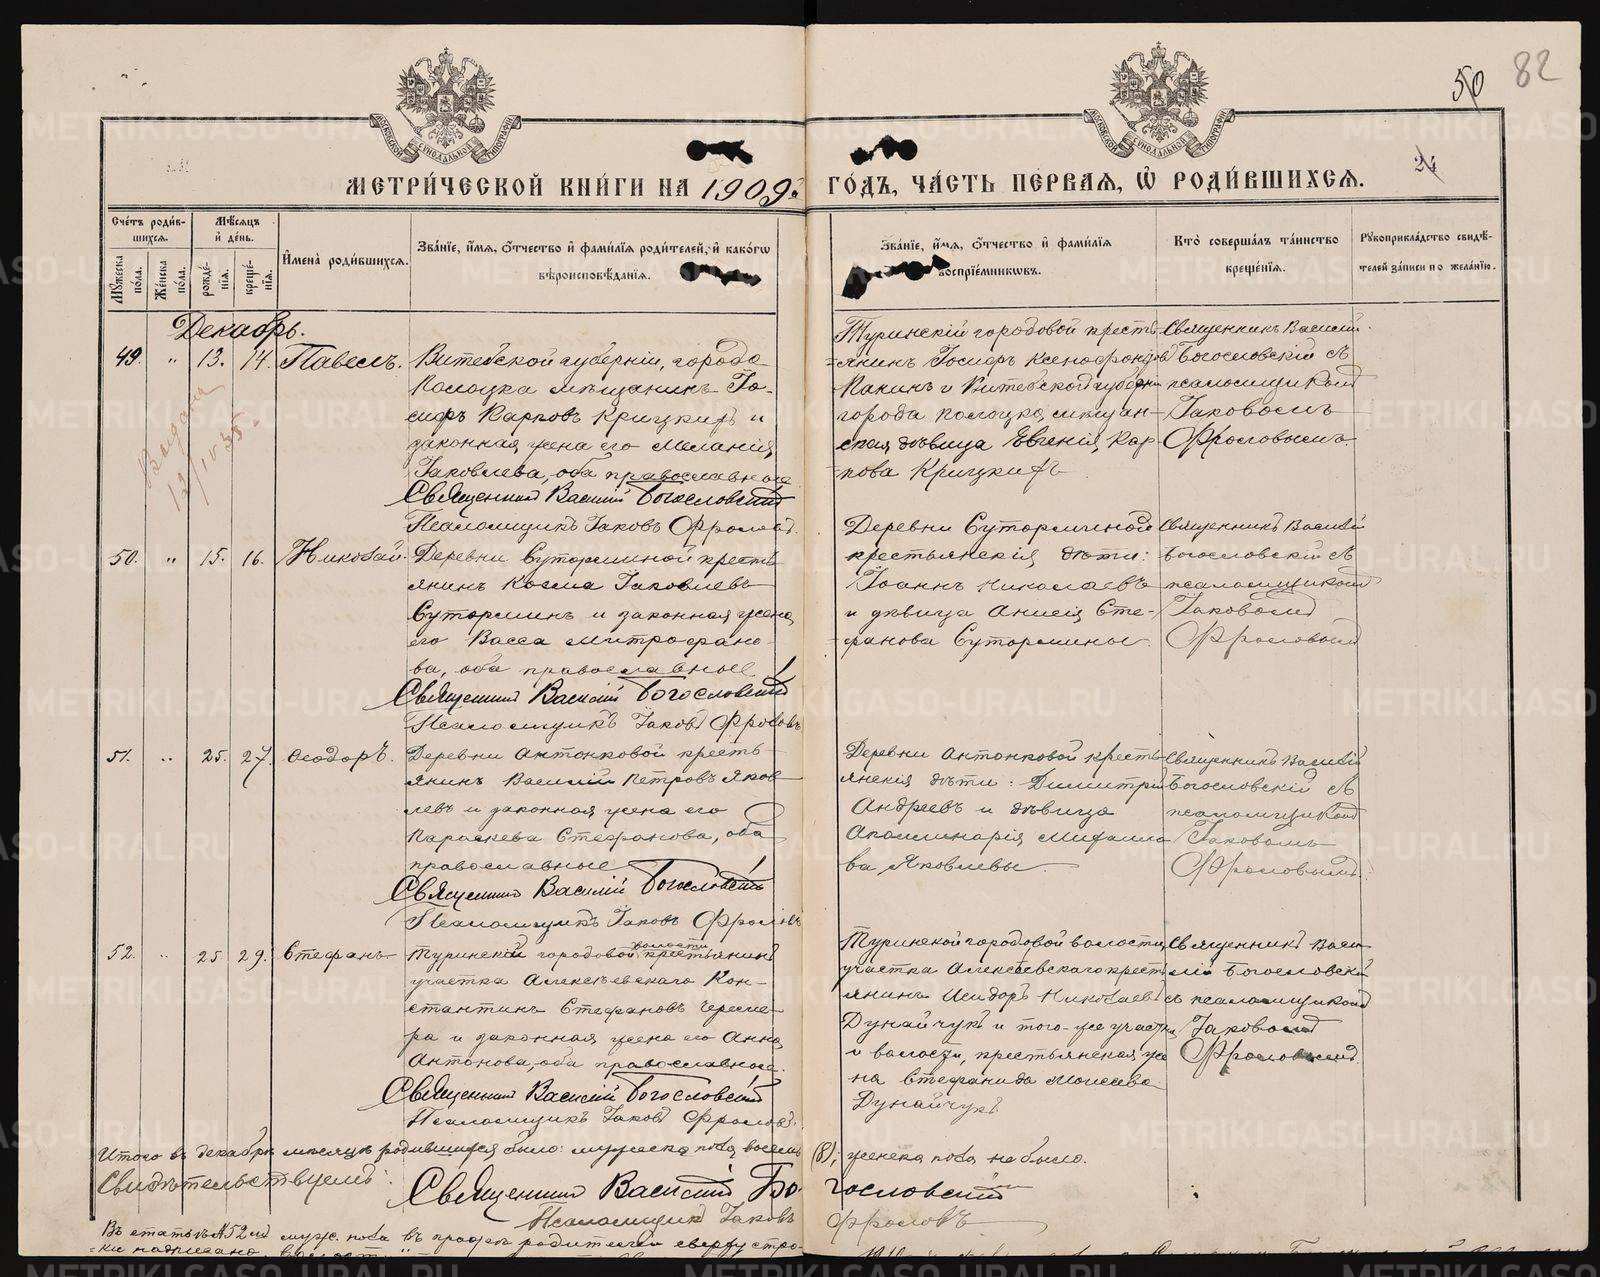 50
82
24
МЕТРИ́ЧЕСКОЙ КНИ́ГИ НА 1909 ГО́ДЪ, ЧА́СТЬ ПЕ́РВАЯ, Ѽ РОДИ́ВШИХСЯ.
Сче́тъ роди́вшихся.
Му́жеска по́ла.
Же́нска по́ла.
Мѣ́сяцъ и́ де́нь.
рожде́нія.
креще́нія.
И́мена̀ роди́вшихся.
Зва́нїе, и́мя, ѻ́тчество и́ фами́лїя роди́телей, и́ како́гѡ
вѣроисповѣ́данїя.
Зва́нїе, и́мя, ѻ́тчество и́ фами́лїя
воспрїе́мниковъ.
Кто̀ соверша́лъ та́инство
креще́нїя.
Рꙋкоприкла́дство свидѣ́телей за́писи по жела́нїю.
Декабрь.
49. " 13. 14. Павелъ.
Витебской губерніи, города
Полоцка мѣщанинъ Іо-
сифъ Карповъ Крицкихъ и
законная жена его Меланія
Іаковлева, оба православные
Священникъ Василій Богословскій
Псаломщикъ Іаковъ Фроловъ.
Туринскій городовой кресть-
янинъ Іосифъ Ксенофонтовъ
Панинъ и Витебской губерніи
города Полоцка, мѣщан-
ская дѣвица Евгенія Кар-
пова Крицкихъ
Священникъ Василій
Богословскій съ
псаломщикомъ
Іаковомъ
Фроловымъ.
50. " 15. 16. Николай.
Деревни Суторминой кресть-
янинъ Косма Іаковлевъ
Суторминъ и законная жена
его Васса Митрофано-
ва, оба православные
Священникъ Василій Богословскій
Псаломщикъ Іаковъ Фроловъ
Деревни Суторминой
крестьянскія дѣти:
Іоаннъ Николаевъ
и дѣвица Анисія Сте-
фанова Сутормины.
Священникъ Василій
Богословскій съ
псаломщикомъ
Іаковомъ
Фроловымъ
51. " 25. 27. Ѳеодоръ.
Деревни Антонковой кресть-
янинъ Василій Петровъ Яков-
левъ и законная жена его
Параскева Стефанова, оба
православные
Священникъ Василій Богословскій
Псаломщикъ Іаковъ Фроловъ
Деревни Антонковой кресть-
янскія дѣти: Димитрій
Андреевъ и дѣвица
Аполлинарія Михаило-
ва, Яковлевы.
Священникъ Василій
Богословскій съ
псаломщикомъ
Іаковомъ
Фроловымъ.
52. " 25 29. Стефанъ
Туринской городовой волости крестьянинъ
участка Алексѣевскаго Кон-
стантинъ Стефановъ
и законная жена его Анна
Антонова, оба православные.
Священникъ Василій Богословскій
Псаломщикъ Іаковъ Фроловъ.
Туринской городовой волости,
участка Алексѣевскаго кресть-
янинъ Исидоръ Николаевъ
Дунайчукъ и того-же участка
и волости, крестьянская же-
на Стефанида Моисеева
Дунайчукъ
Священникъ Васи-
лій Богословскій
съ псаломщикомъ
Іаковомъ
Фроловымъ.
Итого въ декабрѣ мѣсяцѣ родившихся было: мужеска пола восемь (8); женска пола не было.
Свидѣтельствуемъ: Священникъ Василій Богословскій
Псаломщикъ Іаковъ Фроловъ
Въ статьѣ №52 муж. пола въ графѣ родителей сверху стро-
ки надписано: волости
METRIKI.GASO-URAL.RU